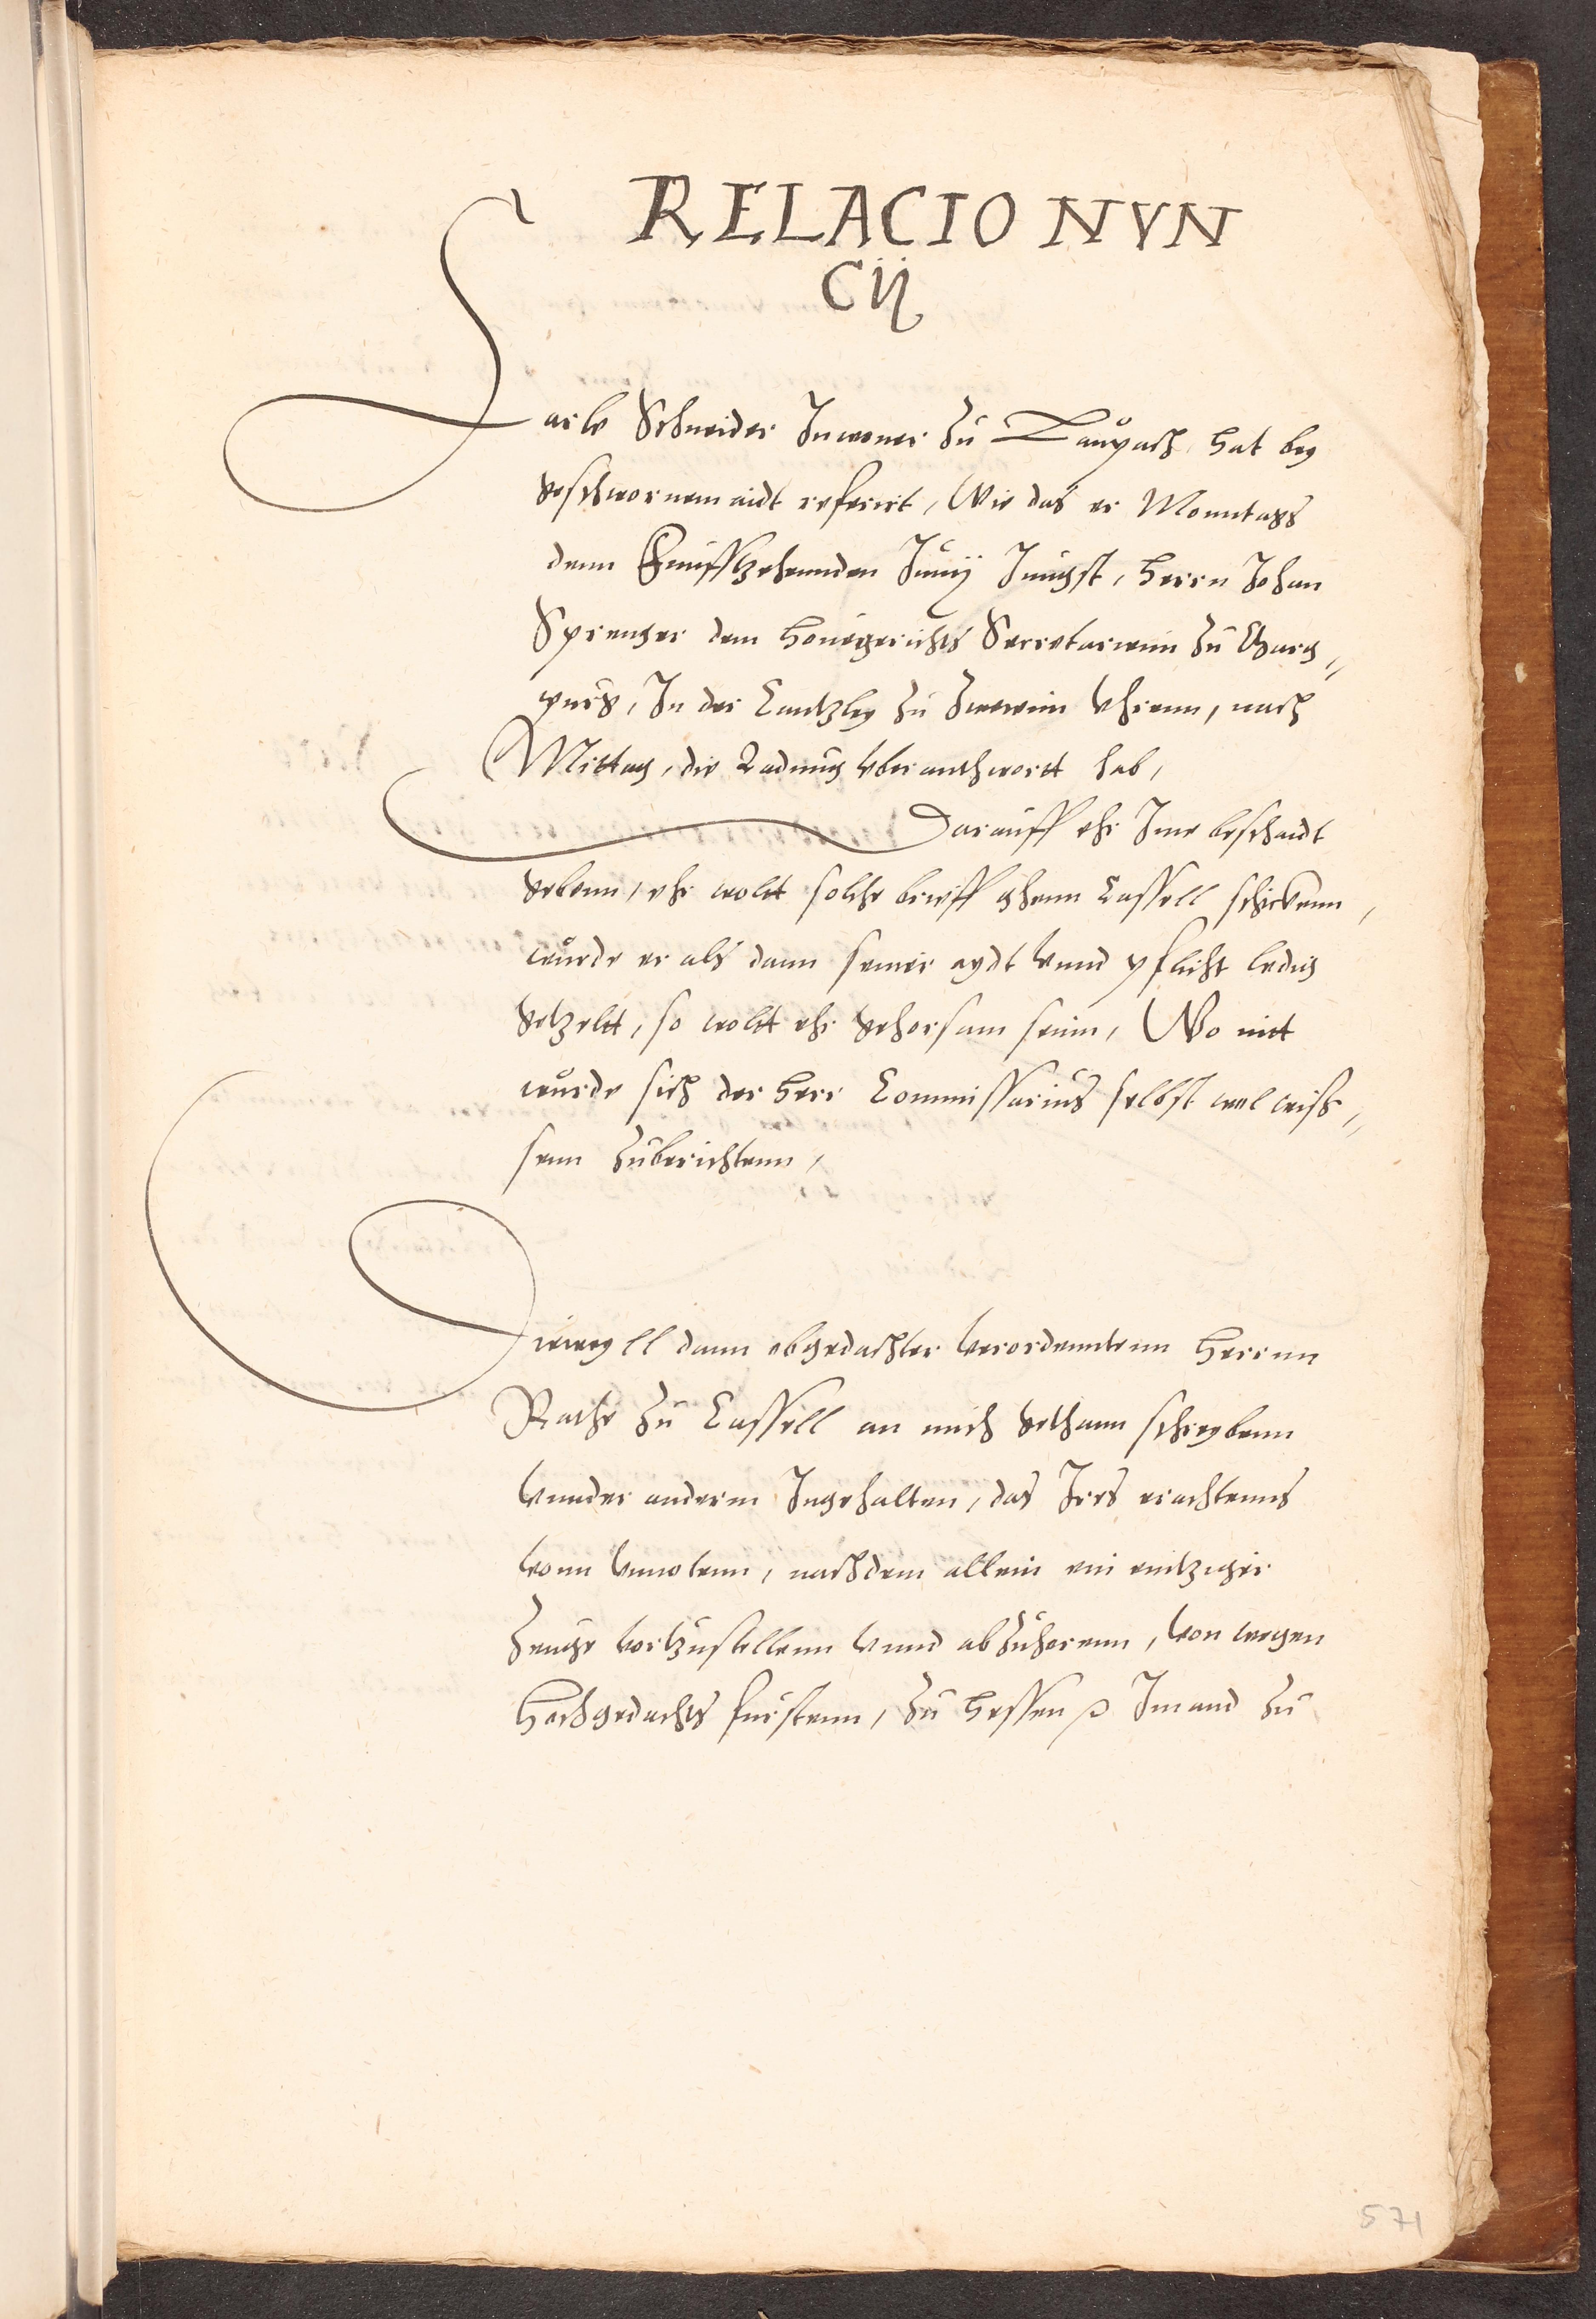 RELACIO NVN
CIJ
Jacle Schneider Inwoner zu Laupach hat bey
geschwornem aidt referirt, Wie das er Monntags
denn Funfftzehennden Junij Jungst, Herrn Johan
Sprenger dem Houegerichts Secretarienn zu Marg„
purg, In der Cantzley zu Zweienn Vhrenn, nach
Mittag, die Ladung vberanthwortt hab,
Darauff ehr Ime beschaidt
gebenn, ehr wolt solche brieff ghenn Cassell schickenn,
wurde er als dann seiner aydt vnnd pflicht ledig
getzelt, so wolt ehr gehorsam seinn, Wo nitt
wurde sich der Herr Commissarius selbst wol wiss„
senn zuberichtenn,
Dieweyll dann obgedachter verordenntenn Herrnn
Rathe zu Cassell an mich gethann schreybenn
vnnder anderm Ingehalten, das Irs erachtenns
vonn vnnotenn, nachdem allein ein eintziger
Zeuge vortzustellenn vnnd abzuhorenn, von wegen
Hochgedachts furstenn, zu Hessen p Jmand zu
571